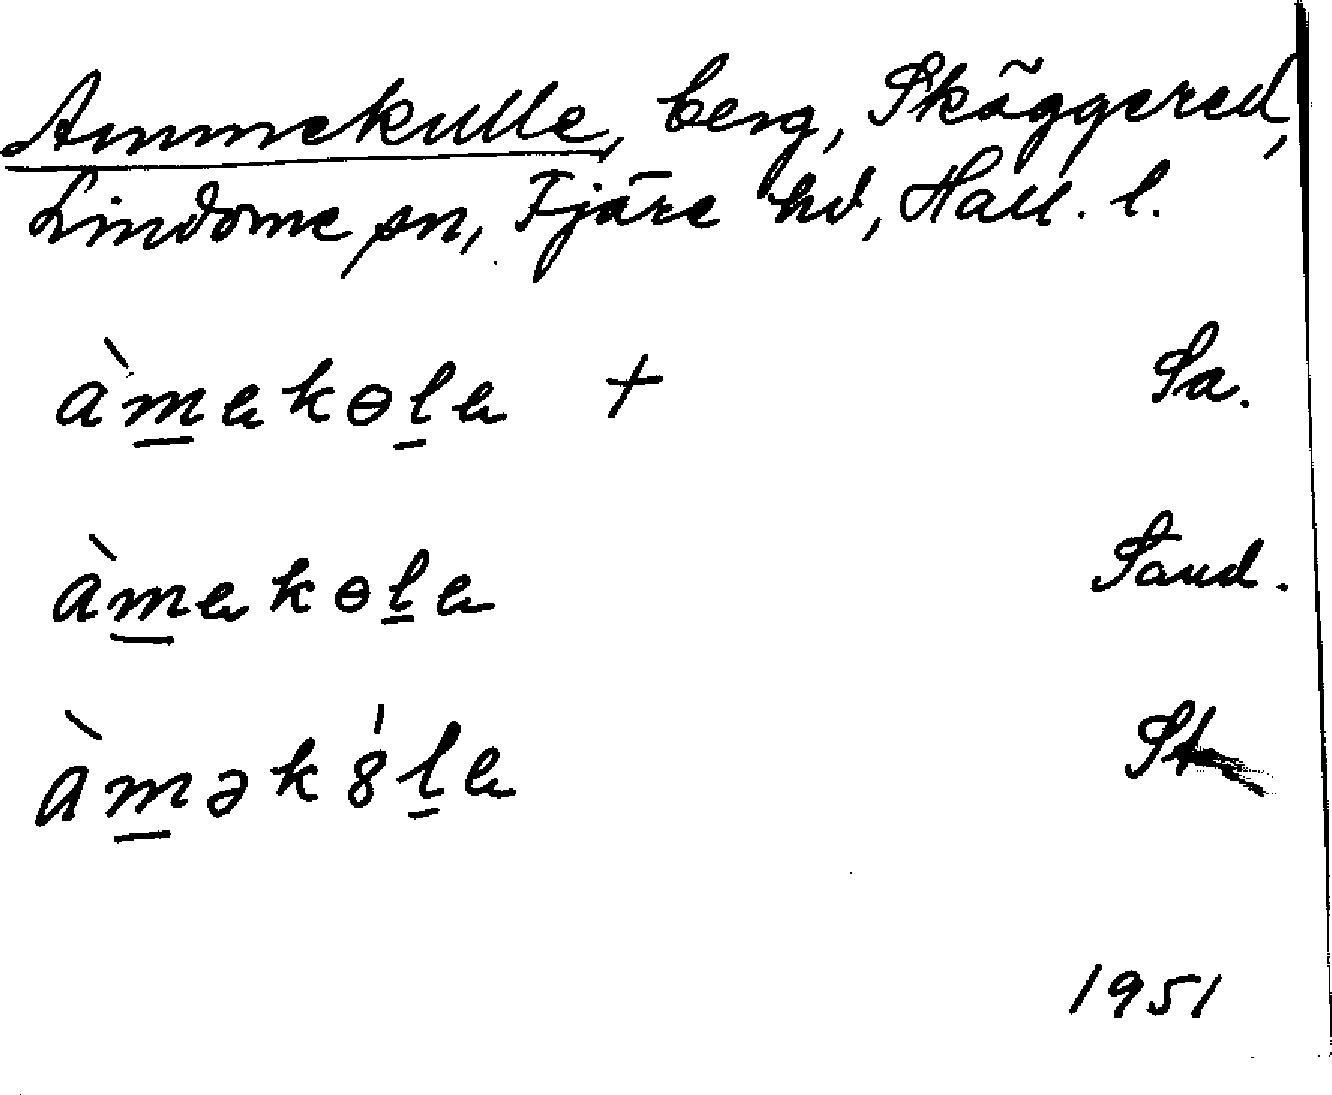 Ammekulle, berg, Skäggered,
Lindome sn, Fjäre hd, Hall. l.
àm̲ekɵl̲e + Sa.
àm̲ekɵl̲e Sand.
àm̲ək8̍l̲e St
1951